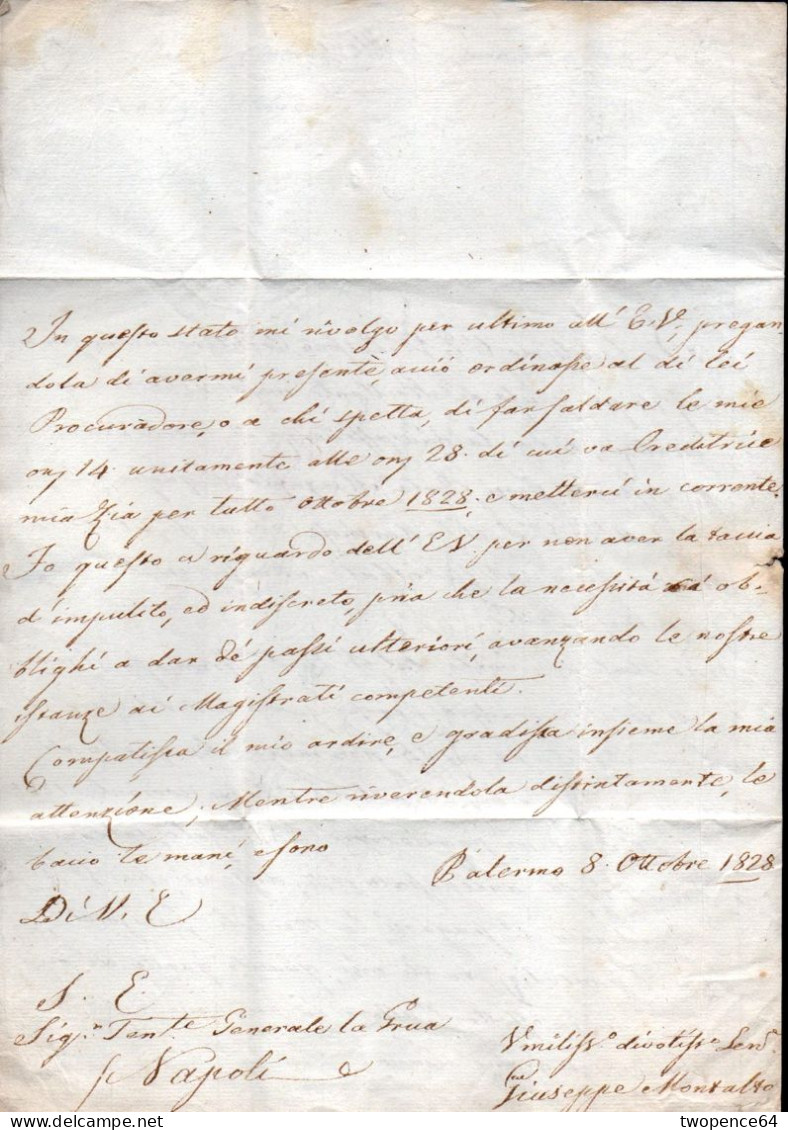 In questo stato mi rivolgo per ultimo all' E.V, pregan-
dola di avermi presente, acciò ordinasse al di lei
Procuradore, o a chi spetta, di far saldare le mie
onz 14. unitamente alle onz 28. di cui va Creditrice
mia Zia per tutto Ottobre 1828. e mettersi in corrente.
Io questo a riguardo dell' E.V. per non aver la taccia
d'impulito, ed indiscreto, pria che la necessità ob-
blighi a dar dé passi ulteriori, avanzando le nostre
istanze ai Magistrati competenti.
Compatisca il mio ardire, e gradisca insieme la mia
attenzione, Mentre riverendola distintamente, le
bacio le mani, e sono
Palermo 8. Ottobre 1828
Di V. E
S. E.
Sig.r Tent.e Generale la Grua
Napoli
Umiliss.o divotiss.o Serv.e
Giuseppe Montalto
twopence64